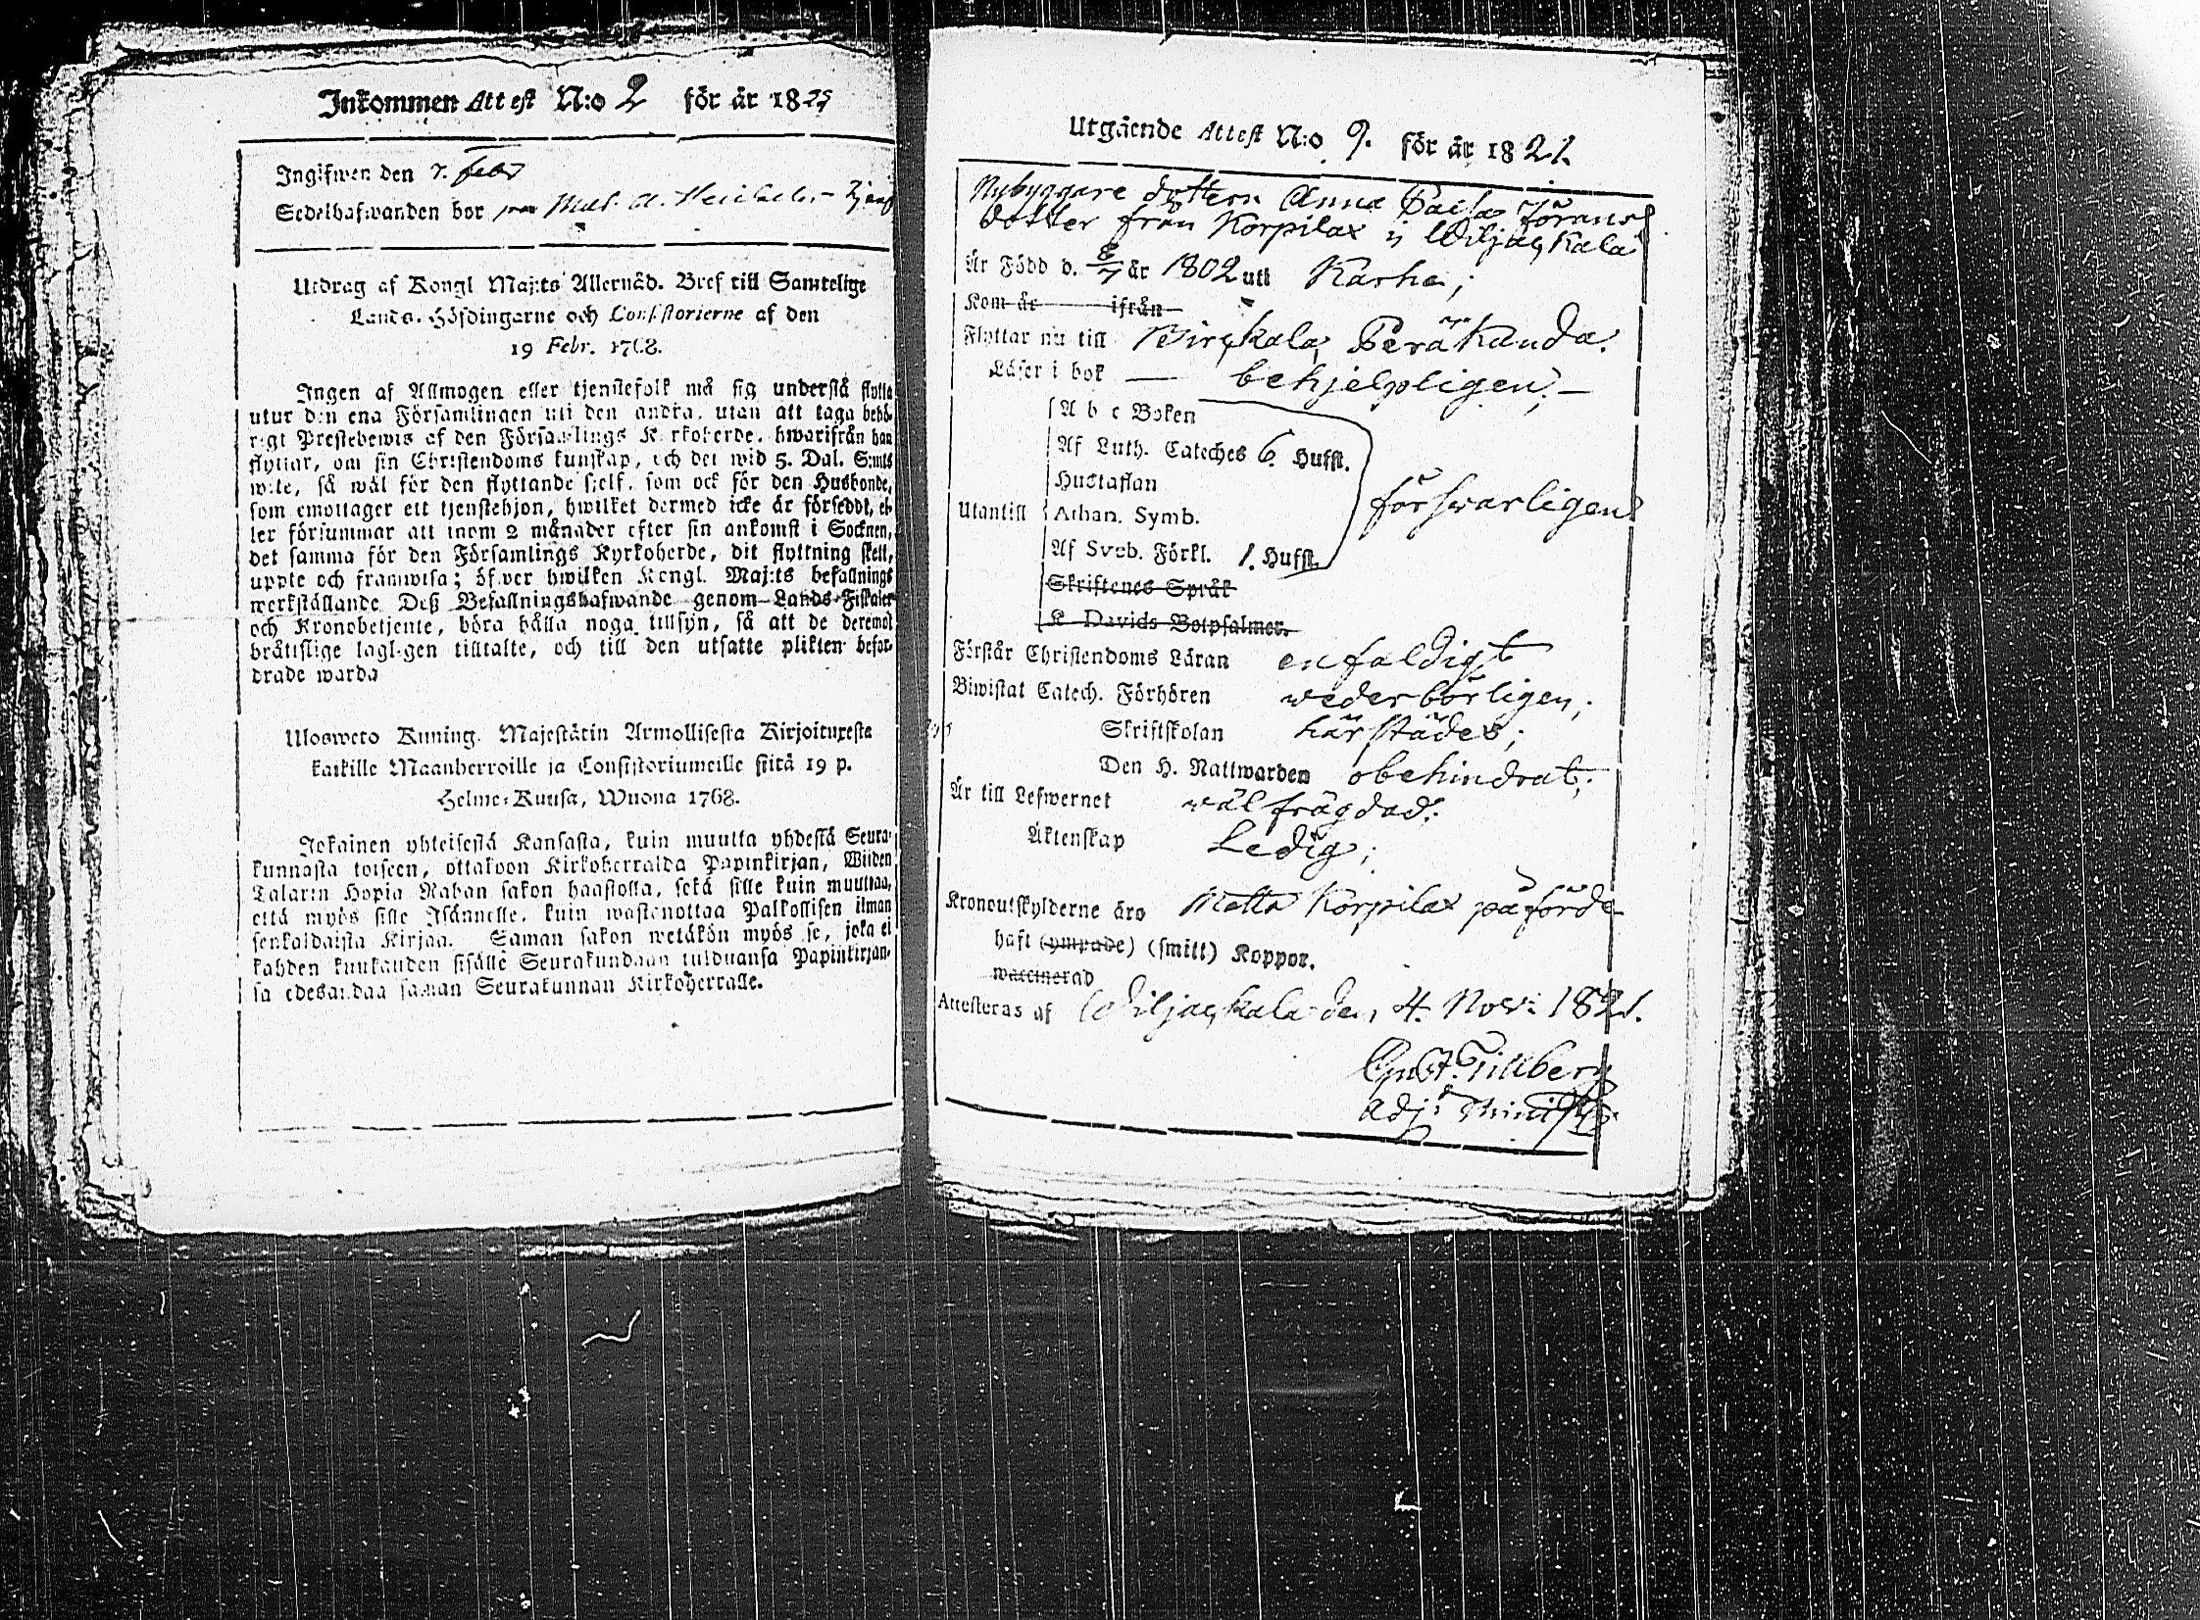 Inkommen Attest N:o 2 för år 18
Ingifwen den 7. febr
Sedelhafwanden bor
Utdrag af Kongl Maj:ts Allernåd. Bref till Samtelige
Lands-Höfdingarne och Consistorierne af den
19 Febr. 1768.
Ingen af Allmogen eller tjenstefolk må sig understå flytta
utur den ena Församlingen uti den andra, utan att taga behö-
rigt Prestebewis af den Församlings Kyrkoherde, hwarifrån han
flyttar, om sin Christendoms kunskap, och det wid 5. Dal. S:mts
wite, så wäl för den flyttande sjelf, som ock för den Husbonde,
som emottager ett tjenstehjon, hwilket dermed icke är förseddt, el-
ler försummar att inom 2 månader efter sin ankomst i Socknen,
det samma för den Församlings Kyrkoherde, dit flyttning skett,
uppte och framwisa; öfwer hwilken Kongl. Maj:ts befallnings
werkställande Deß Befallningshafwande genom Lands-Fiskaler
och Kronobetjente, böra hålla noga tillsyn, så att de deremot
bråttslige lagligen tilltalte, och till den utsatte plikten befor-
drade warda
Ulosweto Kuning. Majestätin Armollisesta Kirjoituxesta
kaikille Maanherroille ja Consistoriumeille siitä 19 p.
Helme-Kuusa, Wuona 1768.
Jokainen yhteisestä Kansasta, kuin muutta yhdestä Seura-
kunnasta toiseen, ottakoon Kirkoherralda Papinkirjan, Wiiden
Talarin Hopia Rahan sakon haastolla, sekä sille kuin muuttaa,
että myös sille Isännelle, kuin wastanottaa Palkollisen ilman
senkaldaista Kirjaa. Saman sakon wetäkön myös se, joka ei
kahden kuukauden sisälle Seurakundaan tulduansa Papinkirjan-
sa edesandaa saman Seurakunnan Kirkoherralle.
Utgående Attest N:o 9. för år 1821.
Nybyggare dottern Anna Caisa Jörans
dotter från Korpilax i Wiljackala
Är Född d. 8/7 år 1802 uti Karha;
Kom år ifrån
Flyttar nu till Birckala, Peräkanda.
Läser i bok — behjelpligen; —
A b c Boken
Af Luth. Cateches 6. Hufst.
Hustaflan
Utantill Athan. Symb. försvarligen
Af Sveb. Förkl. 1. Hufst.
Skriftenes Språk
K. Davids Botpsalmer.
Förstår Christendoms Läran enfaldigt
Biwistat Catech. Förhören wederbörligen;
Skriftskolan härstädes;
Den H. Nattwarden obehindrat;
Är till Lefwernet wälfrägdad;
Äktenskap Ledig;
Kronoutskylderne äro Matts Korpilax påförde
haft (ympade) (smitt) Koppor.
waccinerad
Attesteras af Wiljackala den 4. Nov: 1821.
Gust. Tillberg
Adj: